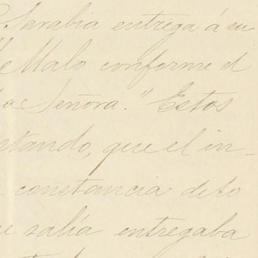 Sarabia entrega á su
Malo conforme el
Señora." Estos
ntando, que el in-
constancia de lo
salía entregaba